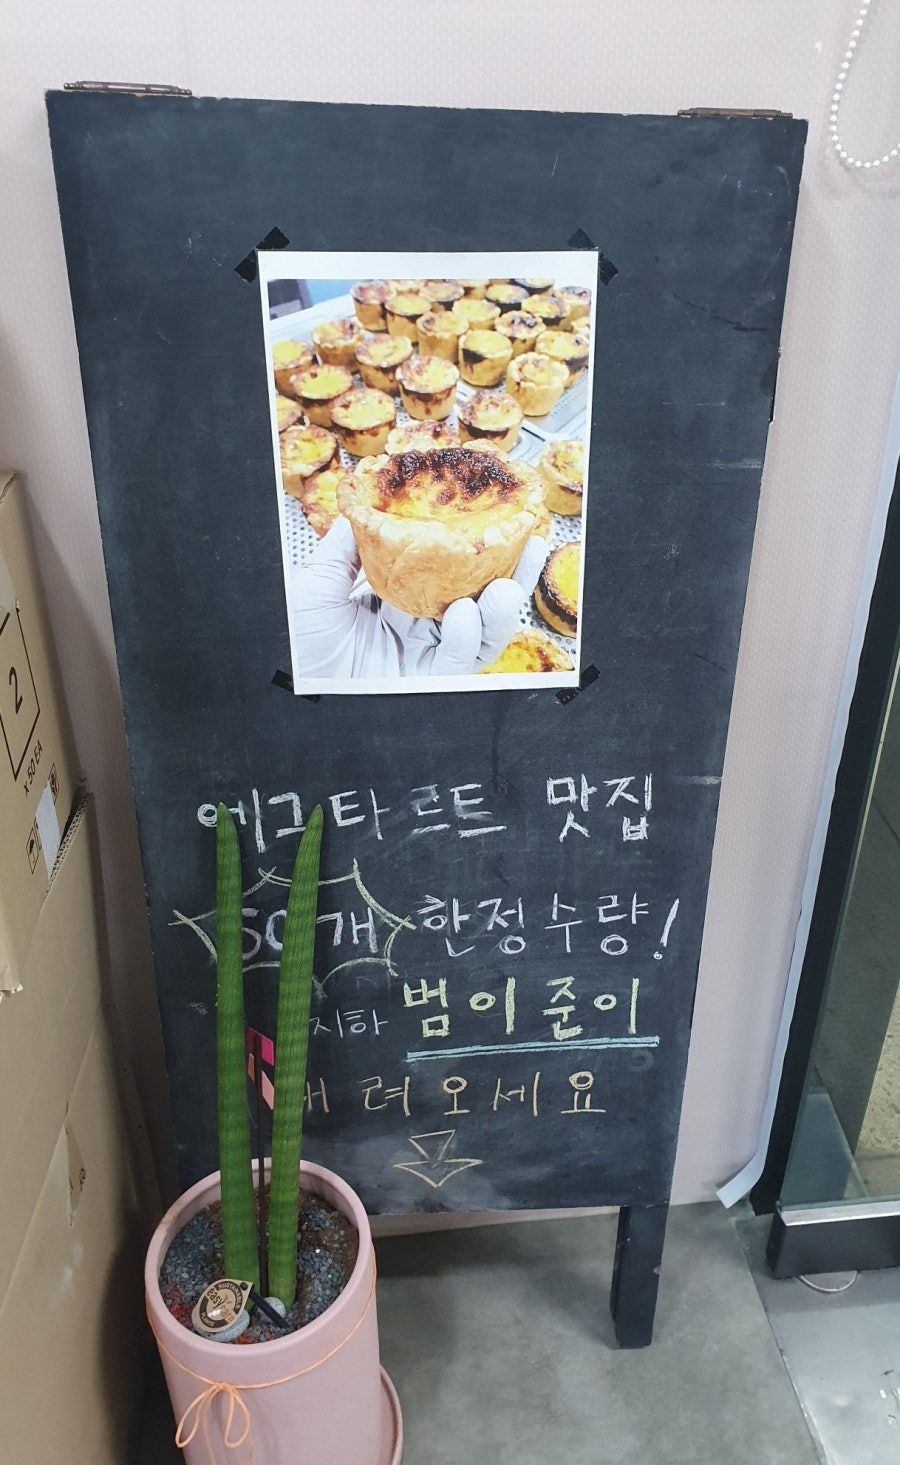 에그타르트 맛집
50개 한정수량!
지하 범이준이
내려오세요
2
x 50 EA